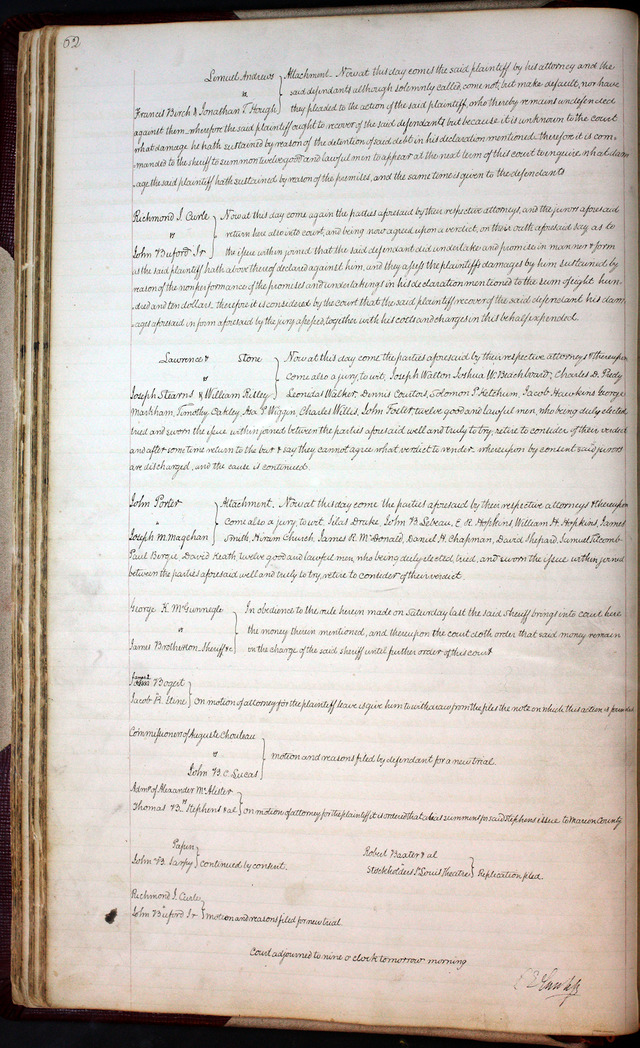 62
Lemuel Andrews } Attachment. Now at this day comes the said plaintiff by his attorney and the
vs said defendants although solemnly called, come not, but make default, nor have
Francis Birch & Jonathan T. Hough } they pleaded to the action of the said plaintiff, who thereby remains undefended
against them. wherefore the said plaintiff ought to recover of the said defendants but because it is unknown to the court
what damage he hath sustained by reason of the detention of said debt in his declaration mentioned. therefore it is com-
manded to the sheriff to summon twelve good and lawful men to appear at the next term of this court to enquire what dam-
age the said plaintiff hath sustained by reason of the premises, and the same time is given to the defendants
Richmond J. Curle } Now at this day come again the parties aforesaid by their respective attorneys, and the jurors aforesaid
vs return here also into court, and being now agreed upon a verdict, on their oath aforesaid say as to
John Buford Jr } the issue within joined that the said defendant did undertake and promise in manner & form
as the said plaintiff hath above thereof declared against him, and they assess the plaintiffs damages by him sustained by
reason of the nonperformance of the promises and undertakings in his declaration mentioned to the sum of eight hun-
dred and ten dollars. therefore it is considered by the court that the said plaintiff recover of the said defendant his dam-
ages aforesaid in form aforesaid by the jury assessed, together with his costs and charges in this behalf expended.
Lawrence & Stone } Now at this day come the parties aforesaid by their respective attorneys & thereupon
vs come also a jury, to wit, Joseph Walton Joshua W. Blackward, Charles D.
Joseph Stearns & William Risley } Leonidas Walker, Dennis Courtois, Solomon P. Ketchum, Jacob Hawkins George
Markham, Timothy Oakley, Asa P. Wiggin, Charles Willis, John Foster twelve good and lawful men, who being duly elected
tried and sworn the issue within joined between the parties aforesaid well and truly to try, retire to consider of their verdict
and after some time return to the bar & say they cannot agree what verdict to render. whereupon by consent said jurors
are discharged, and the cause is continued.
John Porter } Attachment. Now at this day come the parties aforesaid by their respective attorneys & thereupon
vs come also a jury, to wit. Silas Drake, John B. Lebeau, E R Hopkins, William H. Hopkins, James
Joseph M. Magehan } Smith, Hiram Church, James R. McDonald, Daniel H. Chapman, David Shepard, Samuel Titcomb
Paul Bergu, David Heath, twelve good and lawful men, who being duly elected, tried, and sworn the issue within joined
between the parties aforesaid well and truly to try, retire to consider of their verdict.
George K. McGunnegle } In obedience to the rule herein made on Saturday last the said sheriff brings into court here
vs the money therein mentioned, and thereupon the court doth order that said money remain
James Brotherton. Sheriff &c } in the charge of the said sheriff until further order of this court
Bogert
Jacob R. Stine } on motion of attorney for the plaintiff leave is give him to withdraw from the files the note on which this action is founded
Commissioner of Auguste Chouteau
vs } motion and reasons filed by defendant for a new trial.
John B. C. Lucas
Admr of Alexander McAlister
Thomas B. Stephens & al } on motion of attorney for the plaintiff it is ordered that alias summons for said Stephens issue to Marion County
Papin
John B. Sarpy } continued by consent.
Robert Baxter & al
Stockholders St Louis Theatre } Replication filed.
Richmond J. Curle
vs
John Buford Jr } motion and reasons filed for new trial.
Court adjourned to nine o clock tomorrow morning